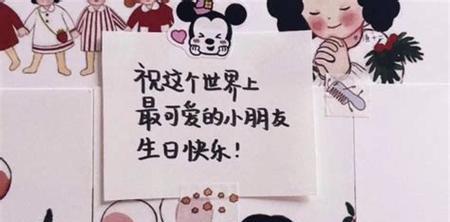 祝这个世界上
最可爱的小朋友
生日快乐!